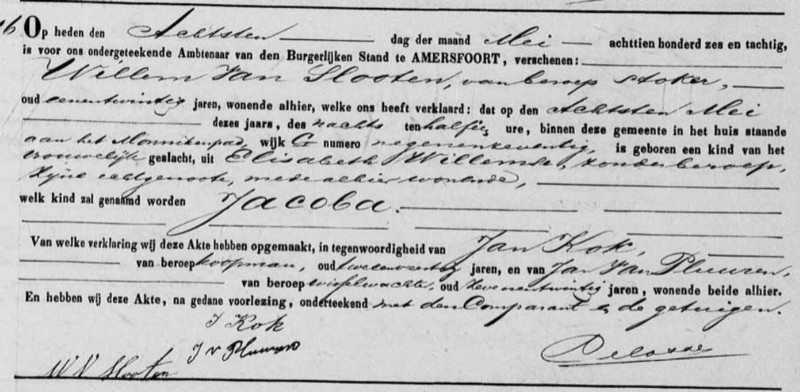 Op heden den Achtsten dag der maand Mei achttien honderd zes en tachtig,
is voor ons ondergeteekende Ambtenaar van den Burgerlijken Stand te AMERSFOORT, verschenen:
Willem van Slooten, van beroep stoker,
oud eenentwintig jaren, wonende alhier, welke ons heeft verklaard: dat op den Achtsten Mei
dezes jaars, des nachts ten half ure, binnen deze gemeente in het huis staande
aan het Monnikenpad, wijk G numero negenenzeventig, is geboren een kind van het
vrouwelijk geslacht, uit Elisabeth Willemse, zonder beroep,
zijne echtgenoote, mede alhier wonende,
welk kind zal genaamd worden Jacoba.
Van welke verklaring wij deze Akte hebben opgemaakt, in tegenwoordigheid van Jan Kok,
van beroep koopman, oud jaren, en van Jan van Pluuren,
van beroep wisselwachter, oud zevenentwintig jaren, wonende beide alhier.
En hebben wij deze Akte, na gedane voorlezing, onderteekend met den Comparant en de getuigen.
J Kok
J v Pluuren
W V Slooten